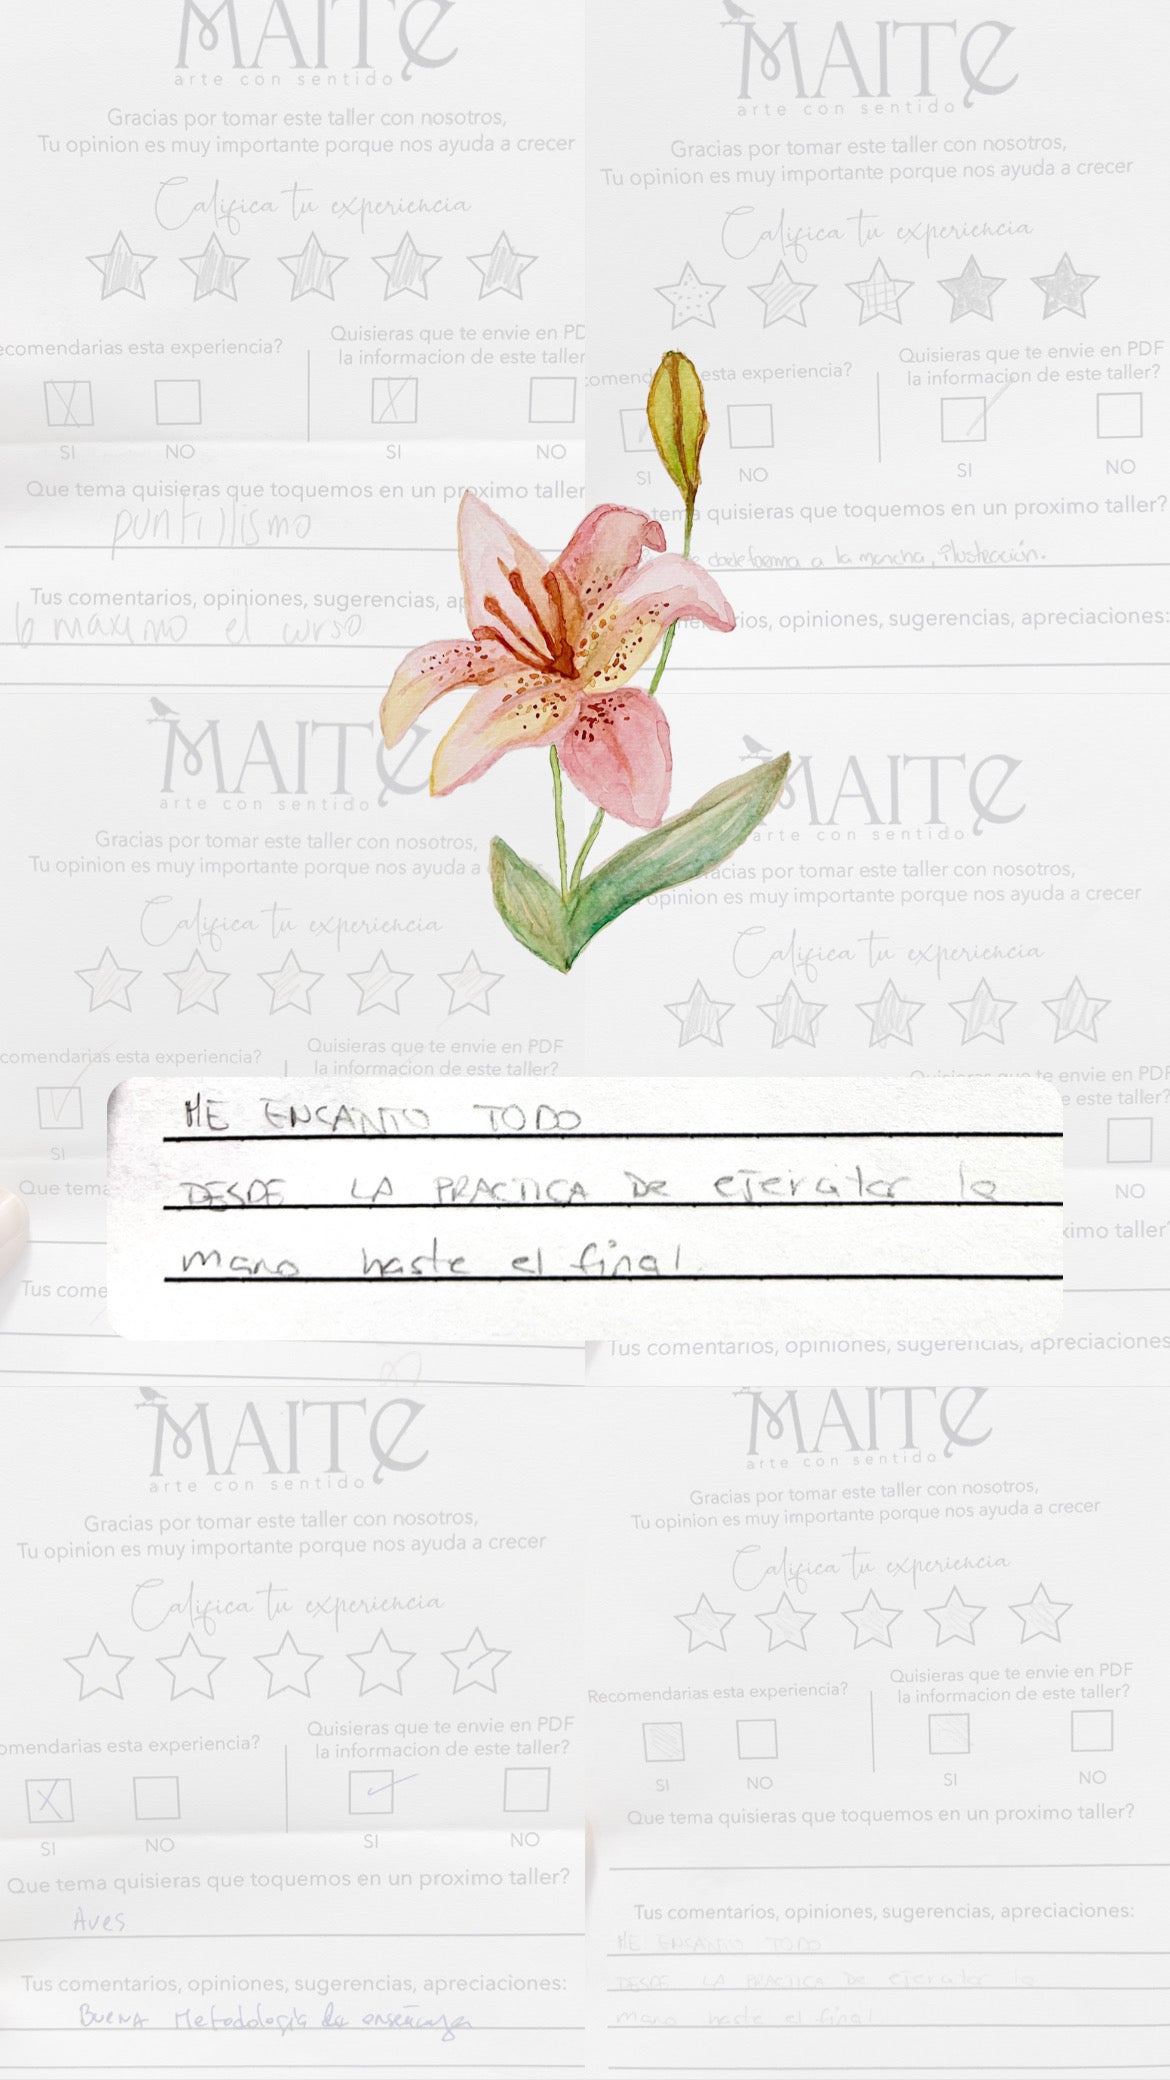 MAITE
arte con sentido
Gracias por tomar este taller con nosotros,
Tu opinion es muy importante porque nos ayuda a crecer
Califica tu experiencia
ecomendarias esta experiencia?
Quisieras que te envie en PD
la informacion de este taller
SI
NO
SI
NO
Que tema quisieras que toquemos en un proximo taller
puntillismo
Tus comentarios, opiniones, sugerencias, ap
lo maximo el curso
MAITE
arte con sentido
Gracias por tomar este taller con nosotros,
Tu opinion es muy importante porque nos ayuda a crecer
Califica tu experiencia
comend esta experiencia?
Quisieras que te envie en PDF
la informacion de este taller?
SI
NO
SI
NO
tema quisieras que toquemos en un proximo taller?
forma a la mancha, ilustración.
rios, opiniones, sugerencias, apreciaciones:
MAITE
arte con sentido
Gracias por tomar este taller con nosotros,
Tu opinion es muy importante porque nos ayuda a
Califica tu experiencia
comendarias esta experiencia?
Quisieras que te envie en PDF
la informacion de este taller?
SI
Que tema
Tus come
MAITE
arte con sentido
racias por tomar este taller con nosotros,
opinion es muy importante porque nos ayuda a crecer
Califica tu experiencia
te envie en PDF
e este taller?
NO
ximo taller?
Tus comentarios, opiniones, sugerencias, apreciaciones
ME ENCANTO TODO
DESDE LA PRACTICA De ejercitar la
mano hasta el final.
MAITE
arte con sentido
Gracias por tomar este taller con nosotros,
Tu opinion es muy importante porque nos ayuda a crecer
Califica tu experiencia
omendarias esta experiencia?
Quisieras que te envie en PDF
la informacion de este taller?
SI
NO
SI
NO
Que tema quisieras que toquemos en un proximo taller?
Aves
Tus comentarios, opiniones, sugerencias, apreciaciones:
BUENA Metodología de enseñanza
MAITE
arte con sentido
Gracias por tomar este taller con nosotros,
Tu opinion es muy importante porque nos ayuda a crecer
Califica tu experiencia
Recomendarias esta experiencia?
Quisieras que te envie en PDF
la informacion de este taller?
SI
NO
SI
NO
Que tema quisieras que toquemos en un proximo taller?
Tus comentarios, opiniones, sugerencias, apreciaciones:
ME ENCANTO TODO
DESDE LA PRACTICA De ejercitar la
mano hasta el final